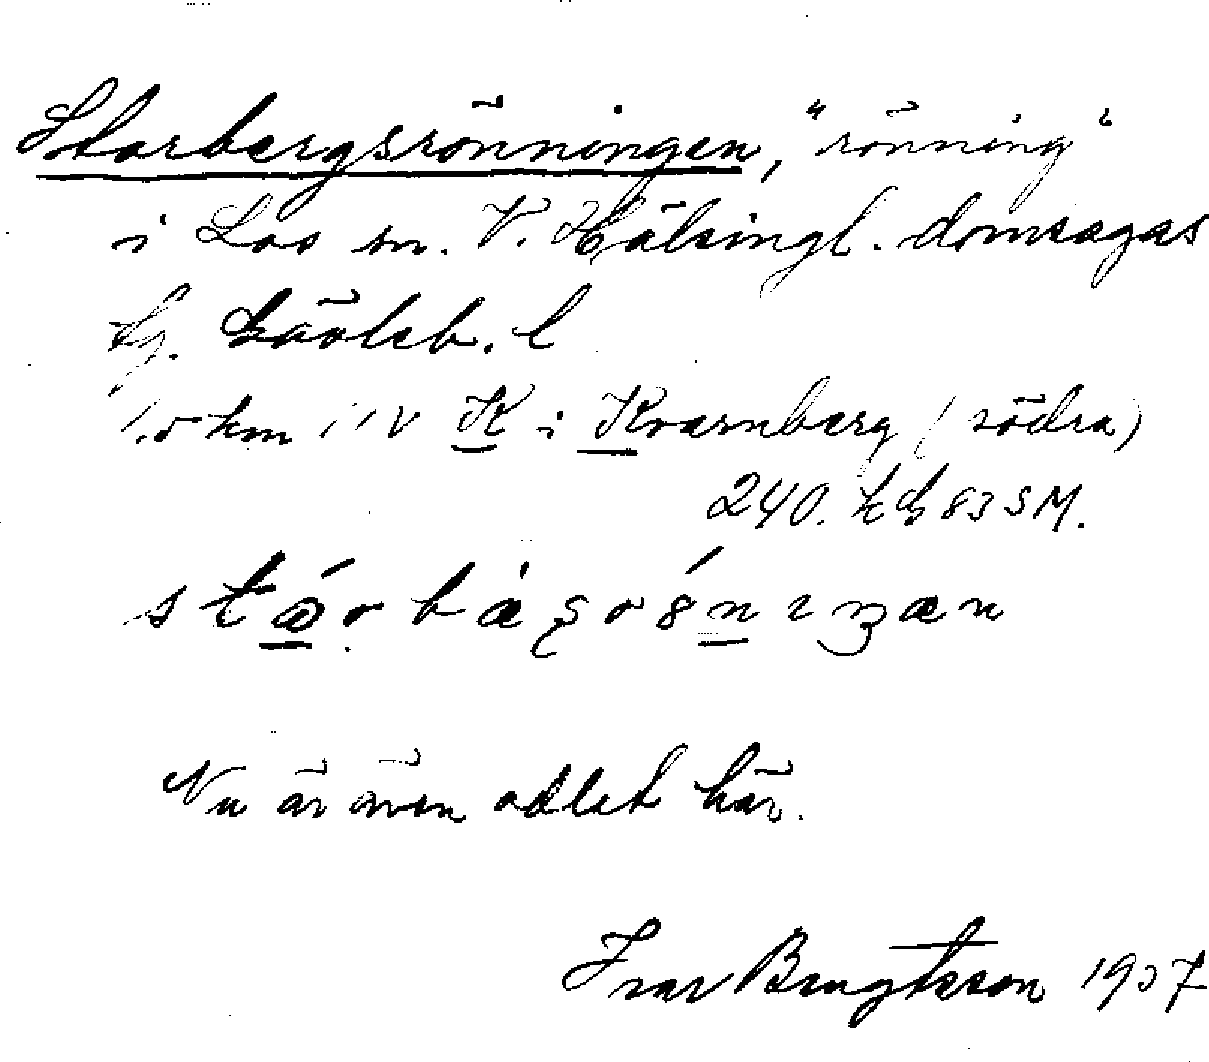 Storbergsrönningen, "rönning"
i Los sn. V. Hälsingl. domsagas
tg. Gävleb. l
1.5 km NV K i Kvarnberg (södra)
240. 83 SM.
Nu är även odlat här.
Ivar Bengtsson 1937